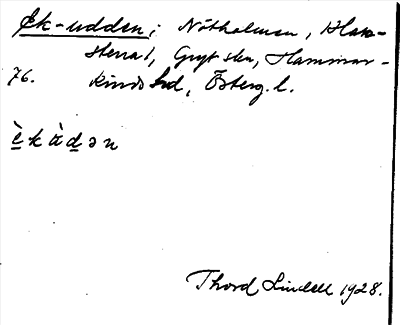 Ek-udden; Nötholmen, Håskenstena1, Gryt skn, Hammar-
76. kinds hd, Österg. l.
èkùdən
Thord Lindell 1928.